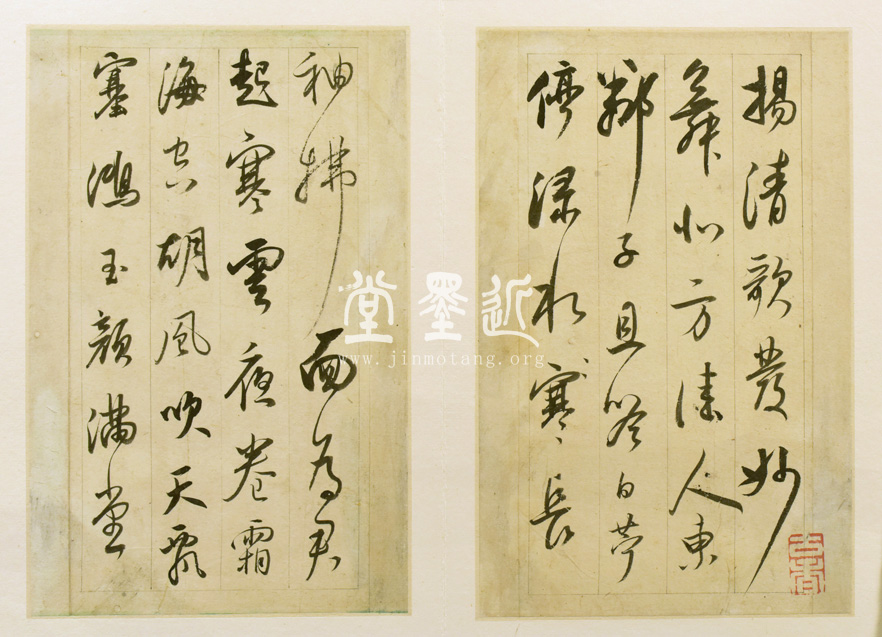 揚清歌發妙
舞北方佳人東
鄰子且吟白苧
停淥水寒長
袖拂面為君
起寒雲夜卷霜
海空胡風吹天飄
塞鴻玉顏滿堂
近墨堂
www.jinmotang.org